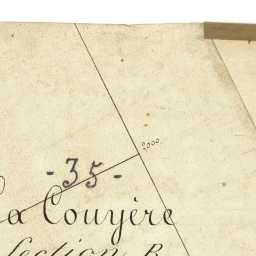 2,000
- 35 -
La Couyère
Section B.